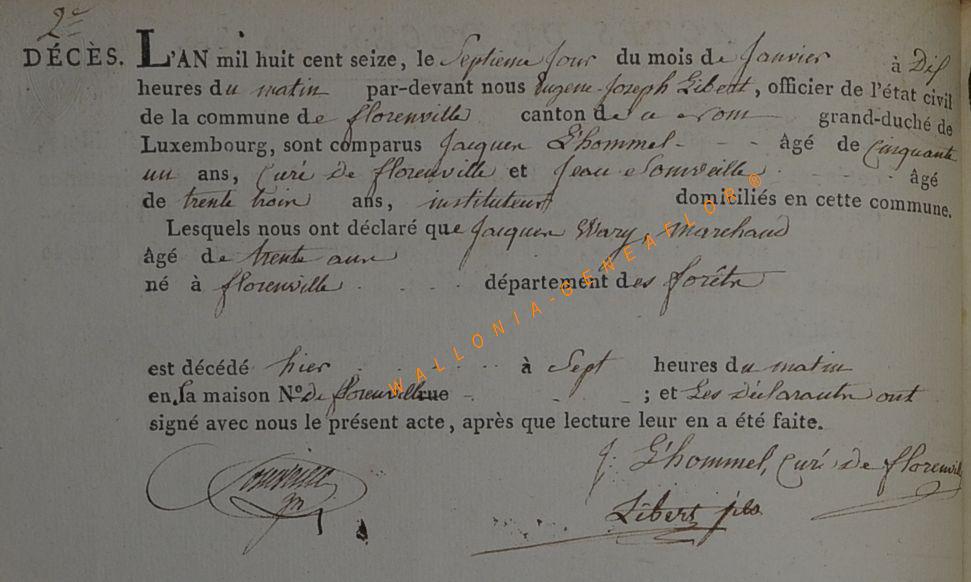 2e
DÉCÈS. L'AN mil huit cent seize, le Septieme Jour du mois de Janvier à Dix
heures du matin par-devant nous Eugene-Joseph Libert, officier de l'état civil
de la commune de florenville canton de grand-duché de
Luxembourg, sont comparus Jacques L'hommel - - - âgé de Cinquante
un ans, Curé de florenville et Jean âgé
de trente trois ans, instituteur domiciliés en cette commune.
Lesquels nous ont déclaré que Jacques Wary, Marchand
âgé de trente ans
né à florenville département des forêts
est décédé hier à Sept heures du matin
en la maison No. de florenville rue ; et Les déclarants ont
signé avec nous le présent acte, après que lecture leur en a été faite.
J: L'hommel, Curé de florenville
Libert
WALLONIA-GENEAFLOR®